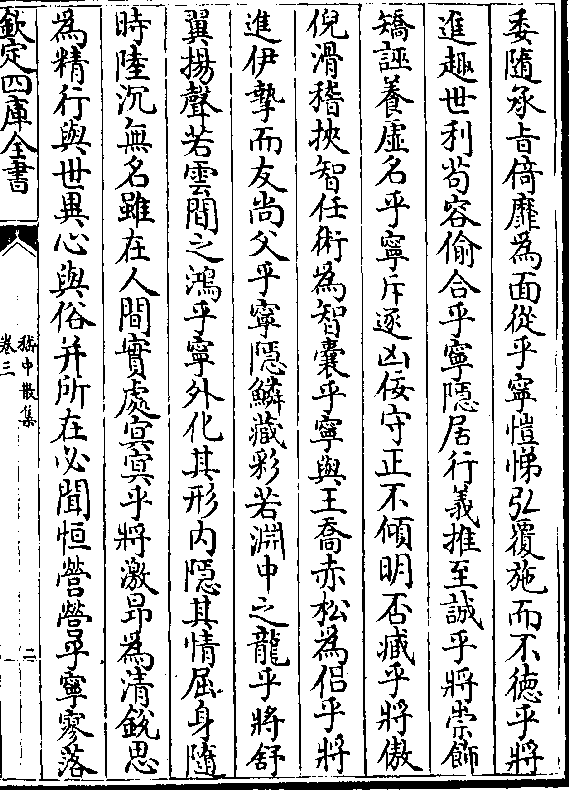 委隨承㫖倚靡為面從乎寧愷悌弘覆施而不徳乎將
進趣世利苟容偷合乎寧隱居行義推至誠乎將崇飾
矯誣養虛名乎寧斥逐凶佞守正不傾明否臧乎將傲
倪滑稽挾智任術為智囊乎寧與王喬赤松為侶乎將
進伊摯而友尚父乎寧隱鱗藏彩若淵中之龍乎將舒
翼揚聲若雲間之鴻乎寧外化其形内隱其情屈身隨
時陸沉無名雖在人間實處㝠㝠乎將激昻為清鋭思
為精行與世異心與俗并所在必聞恒營營乎寧寥落
欽定四庫全書
嵇中散集
卷三
二